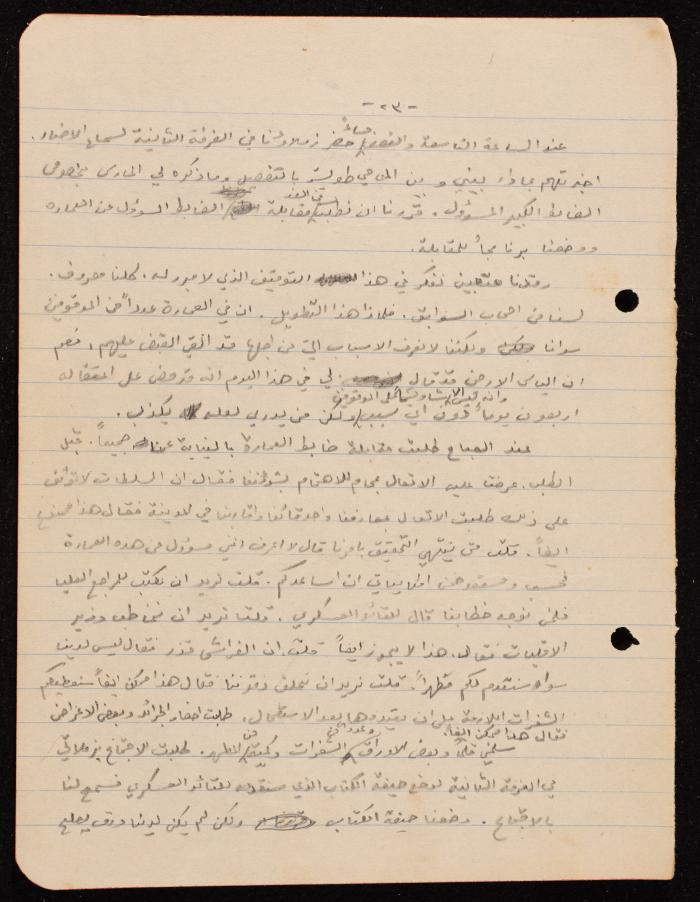 - ٢٣ -
عند الساعة التاسعة والنصف مساءً حضر زملاؤنا في الغرفة الثانية لسماع الاخبار.
اخبرتهم بما دار بيني وبين المحامي بالتفصيل وما ذكره لي الحارس بخصوص
الضابط الكبير المسؤول. قررنا ان نطلب في الغد مقابلة الضابط المسؤول عن العمارة
ووضعنا برنامجاً للمقابلة.
وبتنا نفكر في هذا التوقيف الذي لا مبرر له. كلنا معروف.
لسنا من اصحاب السوابق. فلماذا هذا التطويل. ان في العمارة عدداً من الموقوفين
سوانا ولكننا لا نعرف الاسباب التي من اجلها قد القي القبض عليهم، نعم
ان الياس الارضي قد قال لي في هذا اليوم انه قد مضى على اعتقاله
اربعون يوماً دون اي سبب وانه ليس الا ولكن من يدري لعله يكذب.
عند الصباح طلبت مقابلة ضابط العمارة بالنيابة عنا جميعاً. قبل
الطلب. عرضت عليه الاتصال بمحام للاهتمام بشؤوننا فقال ان السلطات لا توافق
على ذلك طلبت الاتصال بمعارفنا واصدقائنا واقاربنا في المدينة فقال هذا ممنوع
ايضاً. قلت متى ينتهي التحقيق بامرنا قال لا اعرف انني مسؤول عن هذه العمارة
فحسب ومستعد ضمن امكانياتي ان اساعدكم. قلت نريد ان نكتب للمراجع العليا
فلمن نوجه خطابنا قال للقائد العسكري. قلنا نريد ان نخاطب وزير
الاقليات فقال. هذا لا يجوز ايضاً قلت ان الفراش قذر فقال ليس لدينا
سواه سنقدم لكم مطهراً. قلت نريد ان نحلق ذقوننا فقال هذا ممكن ايضاً سنعطيكم
الشفرات اللازمة على ان تعيدوها بعد الاستعمال. طلبت احضار الجرائد وبعض الاغراض
فقال هذا ممكن ايضاً.
سلمني قلماً وبعض الاوراق وعدداً من الشفرات وكمية من المطهر. طلبت الاجتماع بزملائي
في الغرفة الثانية لوضع صيغة الكتاب الذي سنقدمه للقائد العسكري فسمح لنا
بالاجتماع. وضعنا صيغة الكتاب ولكن لم يكن لدينا ورق يصلح